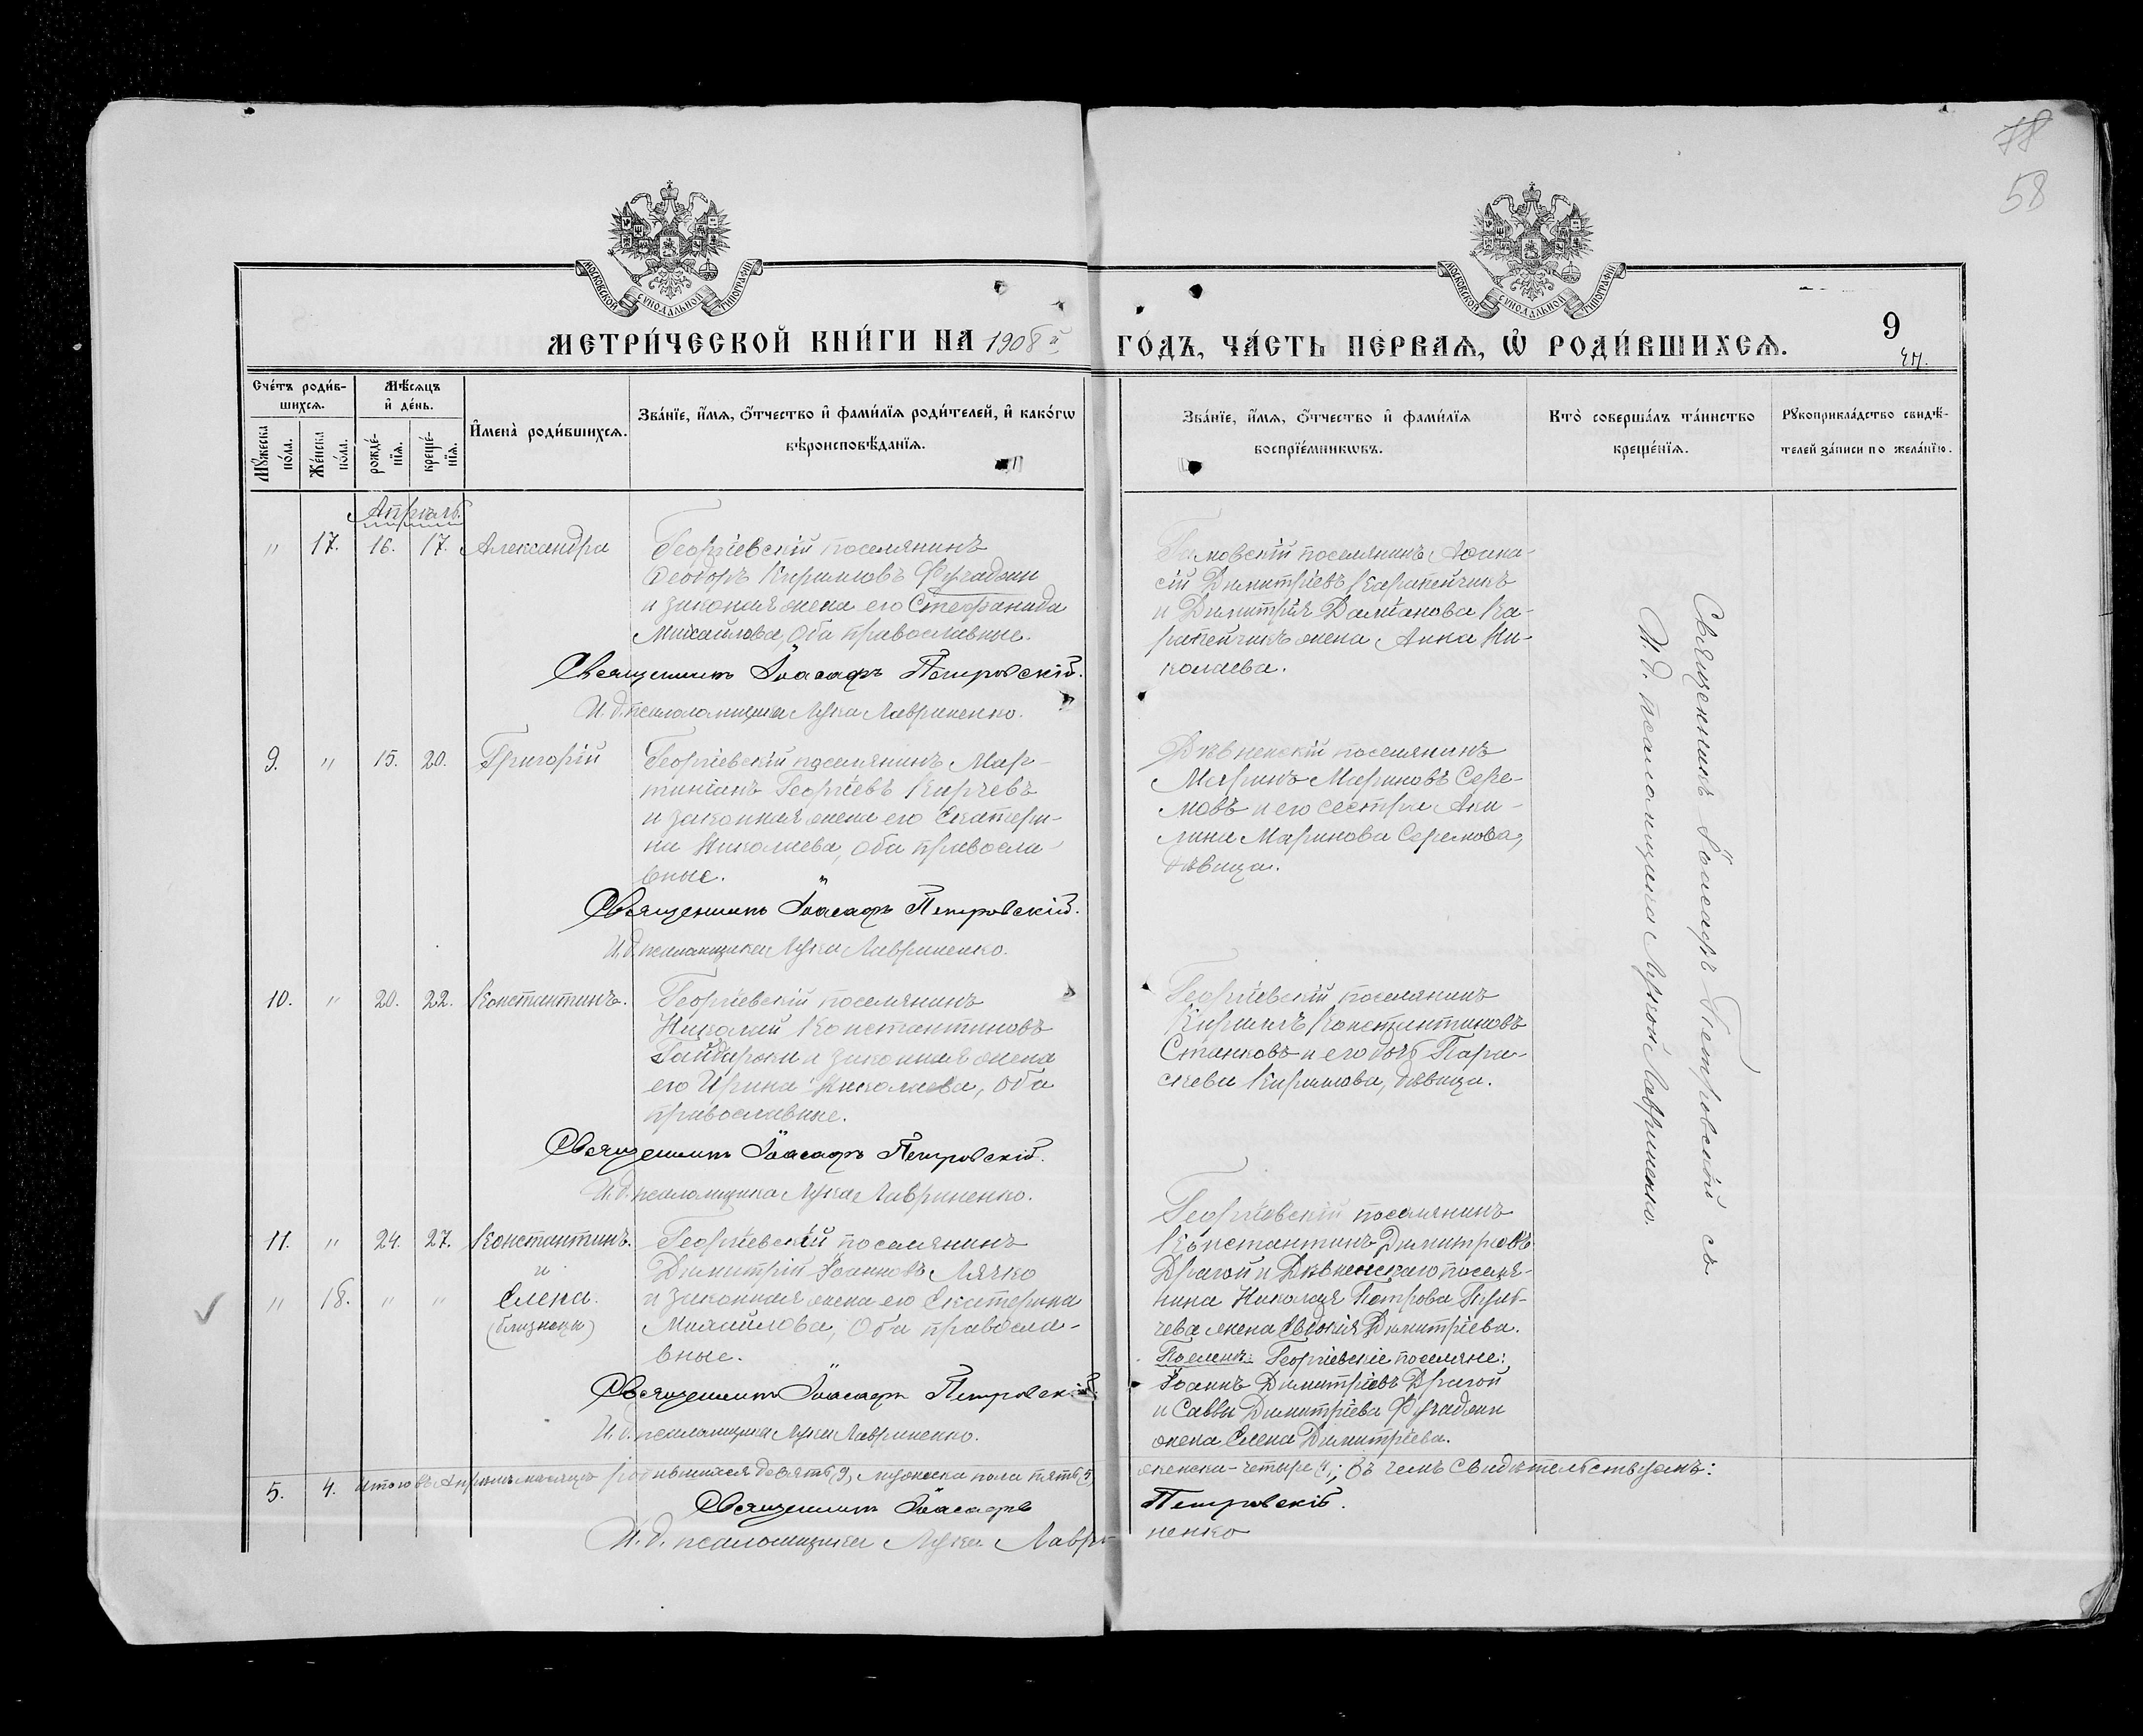 78
58
МОСКОВСКОЙ СѴНОДАЛЬНОЙ ТИПОГРАФІИ
МОСКОВСКОЙ СѴНОДАЛЬНОЙ ТИПОГРАФІИ
МЕТРИ́ЧЕСКОЙ КНИ́ГИ НА 1908 й
ГО́ДЪ, ЧА́СТЬ ПЕ́РВАѦ, Ѡ҆ РОДИ́ВШИХСѦ.
9
Сче́тъ роди́в-
шихсѧ.
Мѣ́сѧцъ
и҆ де́нь.
И҆мена̀ роди́вшихсѧ.
Зва́нїе, и҆́мѧ, ѻ҆́тчество и҆ фами́лїѧ роди́телей, и҆ како́гѡ
вѣроисповѣ́данїѧ.
Мꙋ́жеска
по́ла.
Же́нска
по́ла.
рожде́-
нїѧ.
креще́-
нїѧ.
Зва́нїе, и҆́мѧ, ѻ҆́тчество и҆ фами́лїѧ
воспрїе́мникѡвъ.
Кто̀ соверша́лъ та́инство
креще́нїѧ.
Рꙋкоприкла́дство свидѣ́-
телей за́писи по жела́нїю.
Апрѣль.
" 17. 16. 17. Александра
Георгіевскій поселянинъ
Ѳеодоръ Кирилловъ Фучаджи
и законная жена его Стефанида
Михайлова, оба православные.
Священникъ Іоасафъ Петровскій.
И. д. псаломщика Лука Лавриненко.
поселянинъ
Димитріевъ Карапейчикъ
и Димитрія Даміанова Ка-
рапейчикъ жена Анна Ни-
колаева.
9. " 15. 20. Григорій
Георгіевскій поселянинъ Мар-
тиніанъ Георгіевъ Кирчевъ
и законная жена его Екатери-
на Николаева, оба правосла-
вные.
Священникъ Іоасафъ Петровскій.
И. д. псаломщика Лука Лавриненко.
Дѣвненскій поселянинъ
Маринъ Мариновъ Сере-
мовъ и его сестра Аки-
лина Маринова Серемова,
дѣвица.
10. " 20. 22. Константинъ.
Георгіевскій поселянинъ
Николай Константиновъ
Гайдаржи и законная жена
его Ирина Николаева, оба
православные.
Священникъ Іоасафъ Петровскій.
И. д. псаломщика Лука Лавриненко.
Георгіевскій поселянинъ
Кириллъ Константиновъ
Станковъ и его дочь Пара-
скева Кириллова, дѣвица.
11. " 24. 27. Константинъ.
и
" 18. " " Елена.
(близнецы)
Георгіевскій поселянинъ
Димитрій Іоанновъ Лячко
и законная жена его Екатерина
Михайлова, оба правосла-
вные.
Священникъ Іоасафъ Петровскій.
И. д. псаломщика Лука Лавриненко.
Георгіевскій поселянинъ
Константинъ Димитровъ
Драгой и Дѣвненскаго поселя-
нина Николая Петрова
жена Евдокія Димитріева.
Георгіевскіе поселяне:
Іоаннъ Димитріевъ Драгой
и Саввы Димитріева Фучаджи
жена Елена Димитріева.
Священникъ Іоасафъ Петровскій съ
И. д. псаломщика Лукой Лавриненко.
5. 4. Итого въ Апрѣлѣ мѣсяцѣ родившихся девять 9, мужеска пола пять 5,
женска - четыре 4; въ чемъ свидѣтельствуемъ:
Священникъ Іоасафъ Петровскій.
И. д. псаломщика Лука Лавриненко